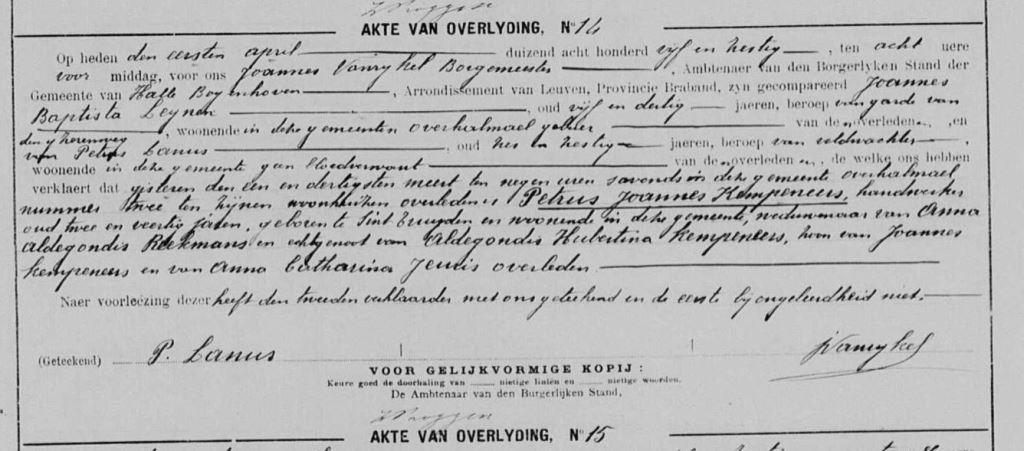 AKTE VAN OVERLYDING, No 14
Op heden den eersten april duizend acht honderd vyf en zestig, ten acht uere
voor middag, voor ons Joannes Vanrykel Borgemeester, Ambtenaer van den Borgerlyken Stand der
Gemeente van Halle Boyenhoven, Arrondissement van Leuven, Provincie Braband, zyn gecompareerd Joannes
Baptista Leynen, oud vyf en dertig jaeren, beroep van garde van
den yzerenweg, woonende in deze gemeenten overhalmael gebuer van de noverleden en, en
van Petrus Lanus, oud zes en zestig jaeren, beroep van veldwachter,
woonende in deze gemeente gan bloedverwant van de noverleden en, de welke ons hebben
verklaert dat gisteren den een en dertigsten meert ten negen uren savonds in deze gemeente overhalmael
nummer twee ten zijnen woonhuizen overleden is Petrus Joannes Kempeneers, handwerker
oud twee en veertig jaren, geboren te Sint Truyden en woonende in deze gemeente, weduwnaar van Anna
Aldegondis Roekmans en echtgenoot van Aldegondis Hubertina Kempeneers, zoon van Joannes
Kempeneers en van Anna Catharina Jeuris overleden.
Naer voorlezing dezer heeft den tweeden verklaarder met ons geteekend en de eerste bij ongeleerdheid niet.
(Geteekend) P. Lanus JVanrykel
VOOR GELIJKVORMIGE KOPIJ :
Keure goed de doorhaling van nietige liniën en nietige woorden.
De Ambtenaar van den Burgerlijken Stand,
AKTE VAN OVERLYDING, No 15